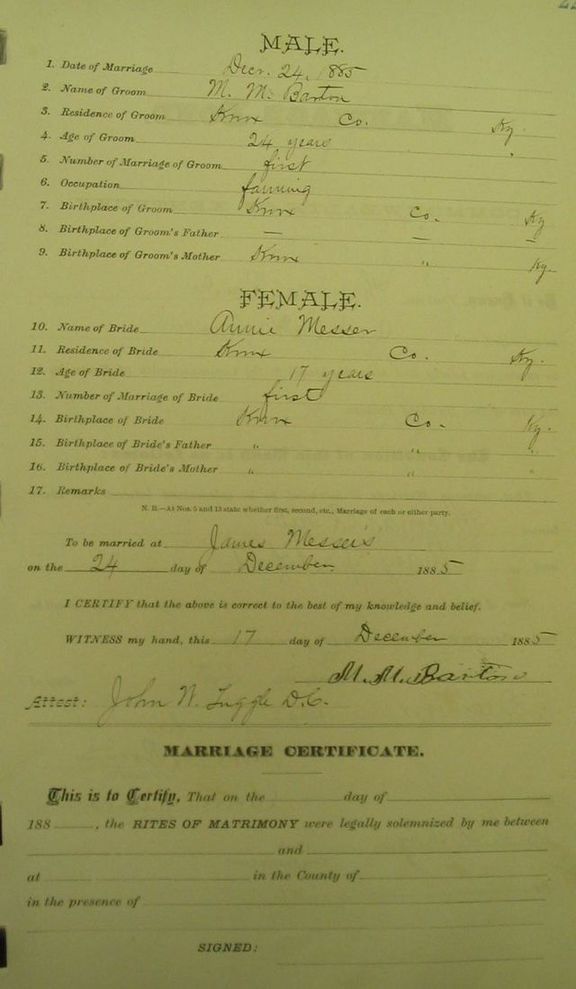 MALE.
1. Date of Marriage Decr. 24, 1885
2. Name of Groom M. M. Barton
3. Residence of Groom Knox Co. Ky.
4. Age of Groom 24 years
5. Number of Marriage of Groom first
6. Occupation farming
7. Birthplace of Groom Knox Co. Ky
8. Birthplace of Groom's Father — — —
9. Birthplace of Groom's Mother Knox " Ky.
FEMALE.
10. Name of Bride Annie Messer
11. Residence of Bride Knox Co. Ky.
12. Age of Bride 17 years
13. Number of Marriage of Bride first
14. Birthplace of Bride Knox Co. Ky.
15. Birthplace of Bride's Father " " "
16. Birthplace of Bride's Mother " " "
17. Remarks
N. B.—At Nos. 5 and 13 state whether first, second, etc., Marriage of each or either party.
To be married at James Messer's
on the 24 day of December 1885
I CERTIFY that the above is correct to the best of my knowledge and belief.
WITNESS my hand, this 17 day of December 1885
M. M. Barton
Attest: John W. Tuggle D.C.
MARRIAGE CERTIFICATE.
This is to Certify, That on the day of
188 , the RITES OF MATRIMONY were legally solemnized by me between
and
at in the County of
in the presence of
SIGNED: